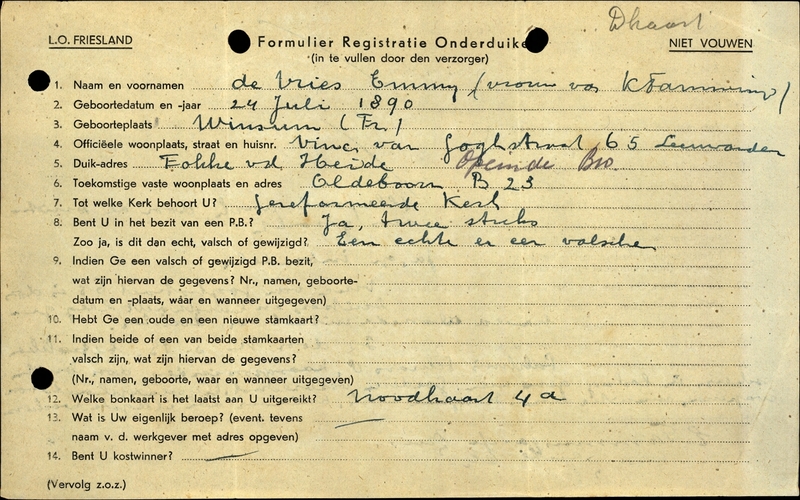 Dkaart
L.O. FRIESLAND
Formulier Registratie Onderduike
NIET VOUWEN
(in te vullen door den verzorger)
1. Naam en voornamen de Vries Emmy (vrouw van K Tamminga)
2. Geboortedatum en -jaar 24 Juli 1890
3. Geboorteplaats Winsum (Fr.)
4. Officiëele woonplaats, straat en huisnr. Vinc. van Goghstraat 65 Leeuwarden
5. Duik-adres Fokke vd Heide Opeinde
6. Toekomstige vaste woonplaats en adres Oldeboorn B 23
7. Tot welke Kerk behoort U? Gereformeerde Kerk
8. Bent U in het bezit van een P.B.? Ja, twee stuks
Zoo ja, is dit dan echt, valsch of gewijzigd? Een echte en een valsche
9. Indien Ge een valsch of gewijzigd P.B. bezit,
wat zijn hiervan de gegevens? Nr., namen, geboorte-
datum en -plaats, waar en wanneer uitgegeven)
10. Hebt Ge een oude en een nieuwe stamkaart?
11. Indien beide of een van beide stamkaarten
valsch zijn, wat zijn hiervan de gegevens?
(Nr., namen, geboorte, waar en wanneer uitgegeven)
12. Welke bonkaart is het laatst aan U uitgereikt? Noodkaart 4a
13. Wat is Uw eigenlijk beroep? (event. tevens —
naam v. d. werkgever met adres opgeven)
14. Bent U kostwinner? —
(Vervolg z.o.z.)